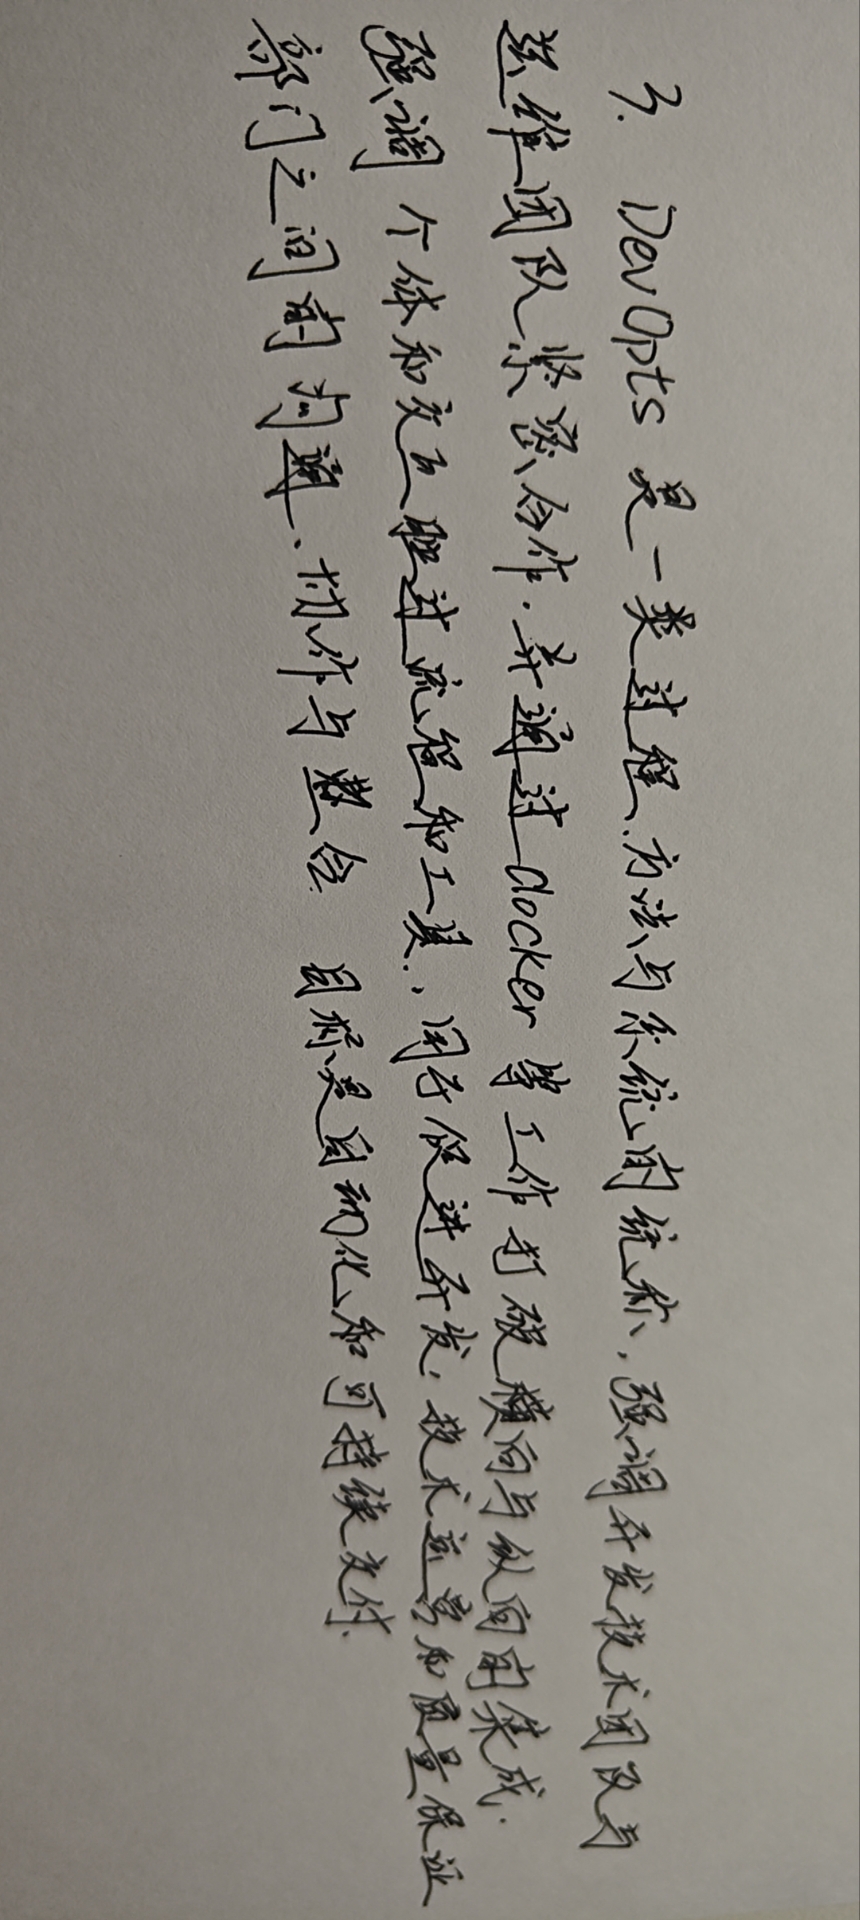 3. DevOpts 是一类过程、方法与系统的统称，强调开发技术团队与
运维团队紧密合作.并通过docker等工作打破横向与纵向的集成.
强调 个体和交互胜过流程和工具.，用于促进开发.技术运营和质量保证
部门之间的沟通、协作与整合 目标是自动化和可持续交付.